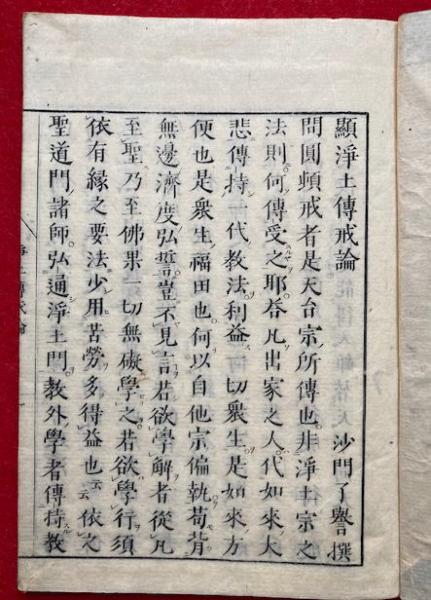 顯淨土傳戒論 沙門了譽撰
問圓頓戒者是天台宗所傳也非淨土宗之
法則何傳受之耶荅凡出家之人代如來大
悲傳持一代教法利益一切衆生是如來方
便也是衆生福田也何以自他宗偏執苟背
無邊濟度弘誓豈不見言若欲學解者從凡
至聖乃至佛果一切無礙學之若欲學行須
依有縁之要法少用苦勞多得益也云云依之
聖道門諸師弘通淨土門教外學者傳持教